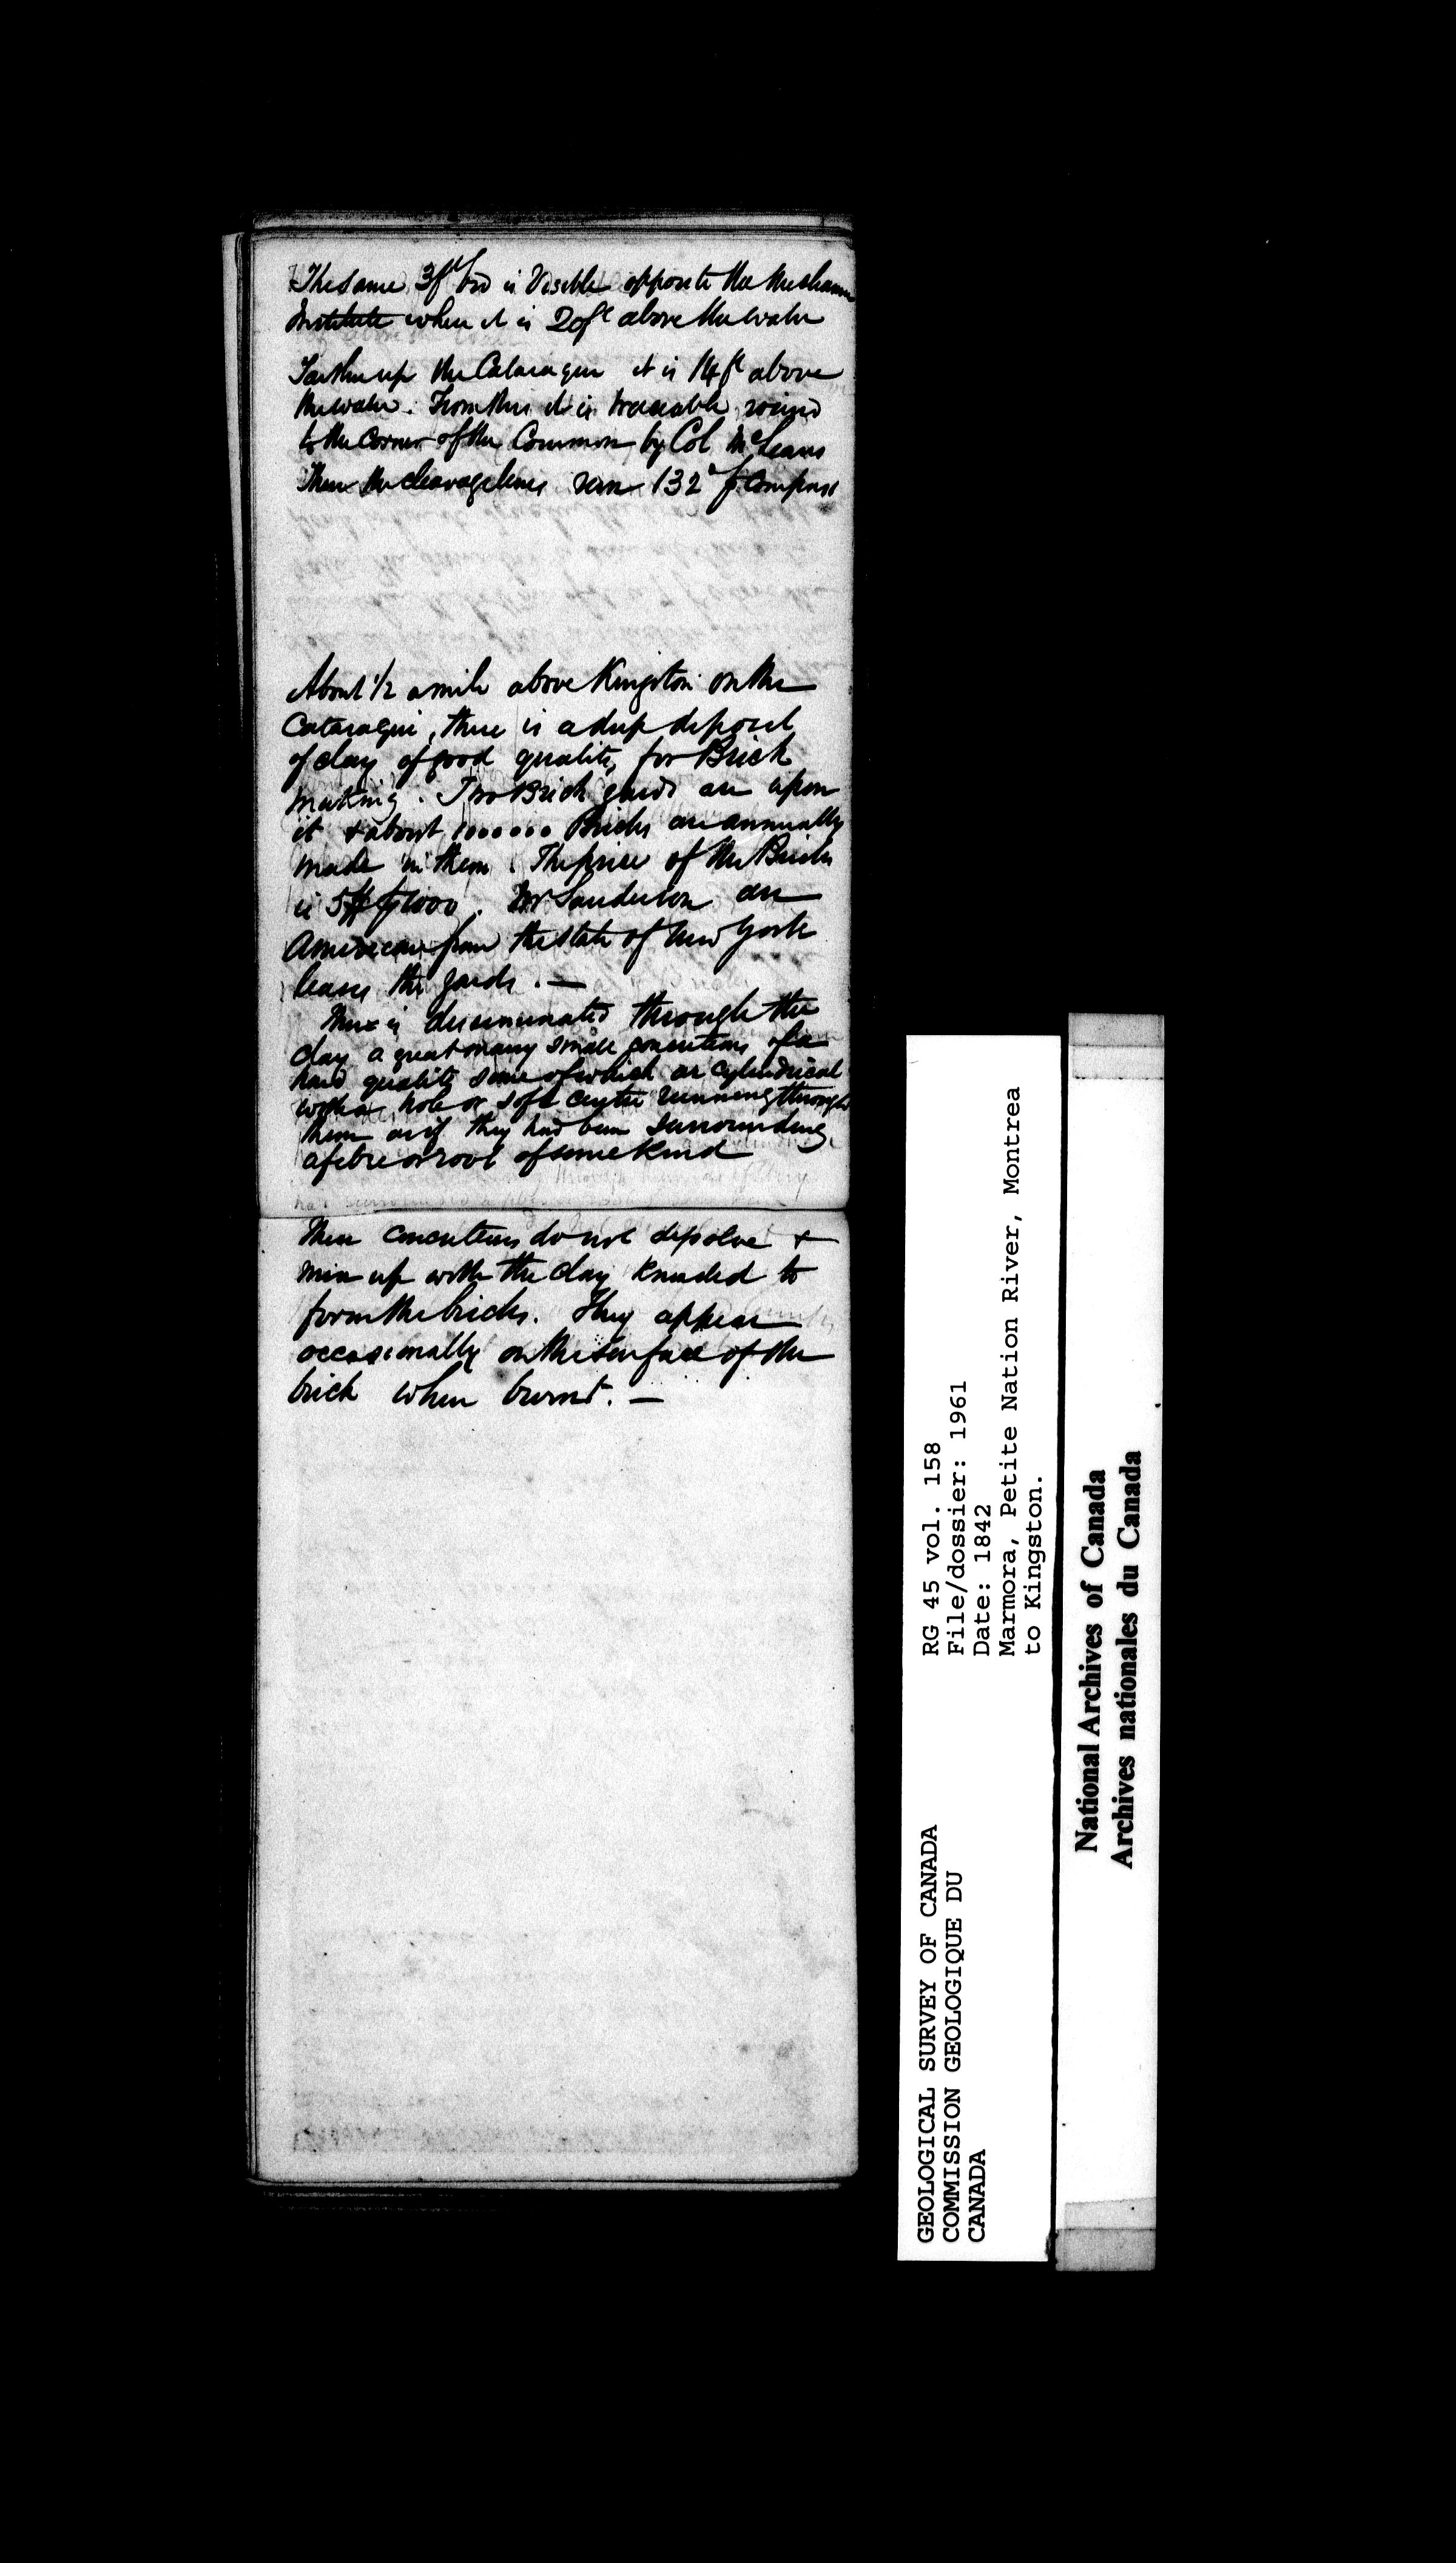 The same 3ft bed is Visible opposite the Mechanics
Institute where it is 20ft above the water
Farther up the Cataraqui it is 14ft above
the water. From this it is traceable round
to the corner of the Common by Col McLeans
There the cleavage lines run 132° p compass
About 1/2 a mile above Kingston on the
Cataraqui, there is a deep deposit
of clay of good quality for Brick
making. Two Brick yards are upon
it & about 1000000 Bricks are annually
made in them. The price of the Bricks
is 5$ p 1000. Mr Sanderson an
American from the state of New York
leases the yards. —
There is disseminated through the
clay a great many small concretions of a
hard quality some of which are cylindrical
with a hole or soft centre running through
them as if they had been surrounding
a fibre or root of some kind
These concretions do not dissolve &
mix up with the clay kneaded to
form the bricks. They appear
occasionally on the surface of the
brick when burnt. —
GEOLOGICAL SURVEY OF CANADA
COMMISSION GEOLOGIQUE DU
CANADA
RG 45 vol. 158
File/dossier: 1961
Date: 1842
Marmora, Petite Nation River, Montrea
to Kingston.
National Archives of Canada
Archives nationales du Canada